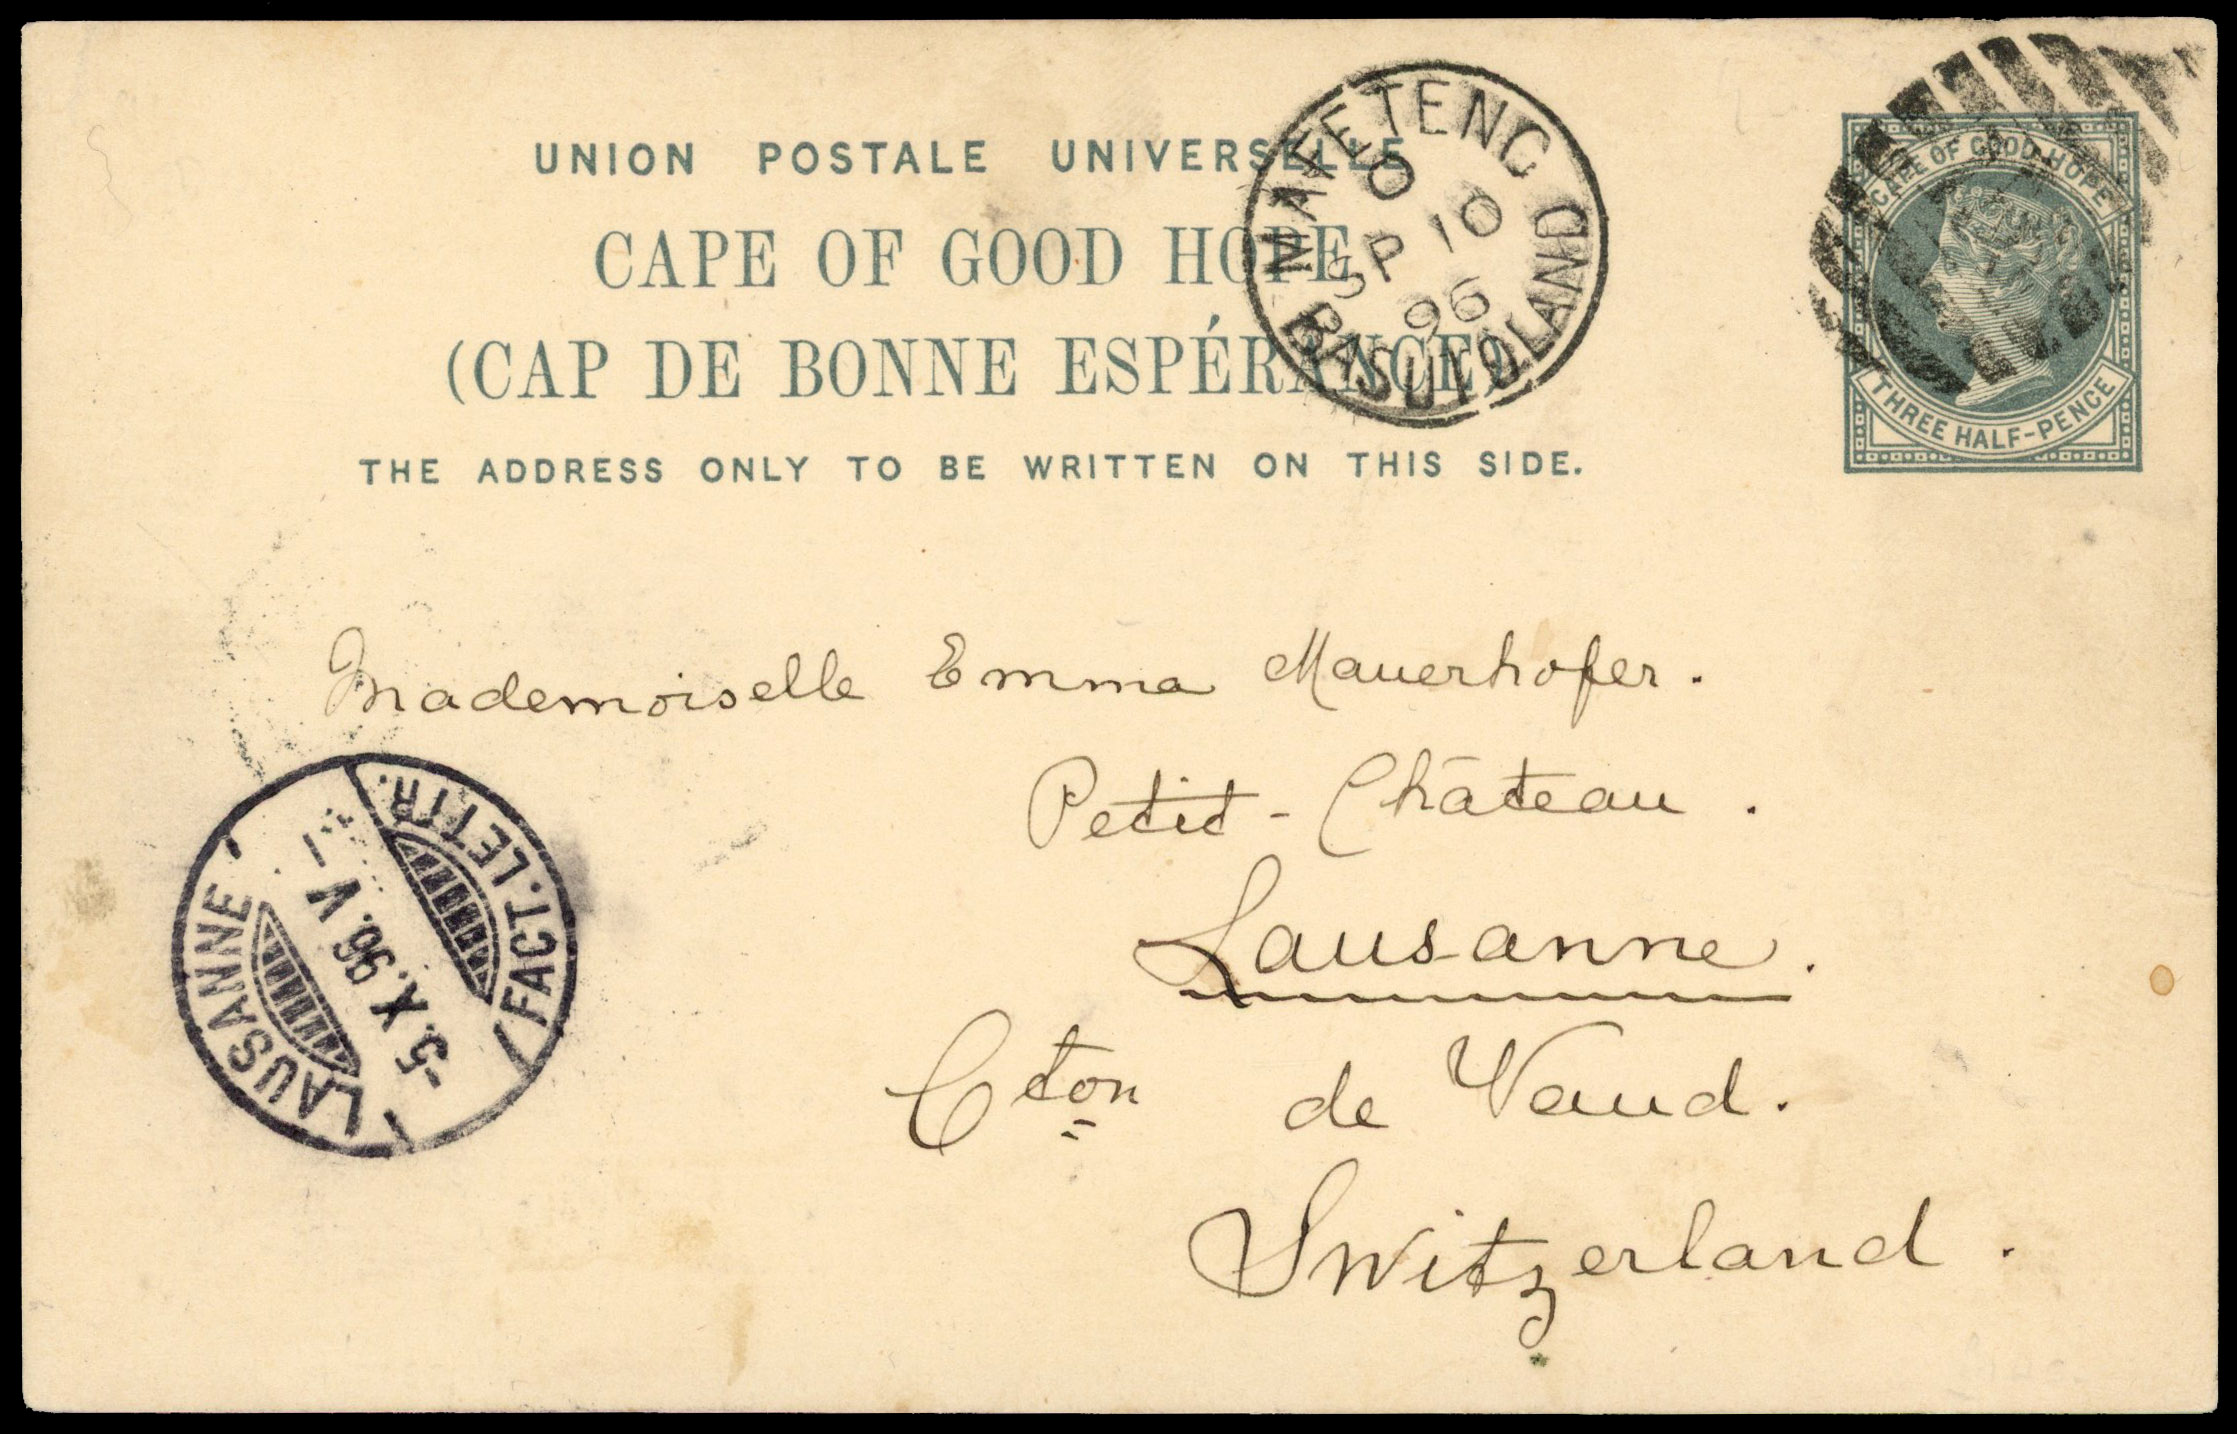 UNION POSTALE UNIVERSELLE
CAPE OF GOOD HOPE
(CAP DE BONNE ESPÉRANCE)
THE ADDRESS ONLY TO BE WRITTEN ON THIS SIDE.
MAFETENG
0
SP 10
96
BASUTOLAND
CAPE OF GOOD HOPE
THREE HALF-PENCE
Mademoiselle Emma Mauerhofer.
Petit-Château.
Lausanne.
Cton de Vaud.
Switzerland.
LAUSANNE
-5.X.96.V-
FACT. LETTR.